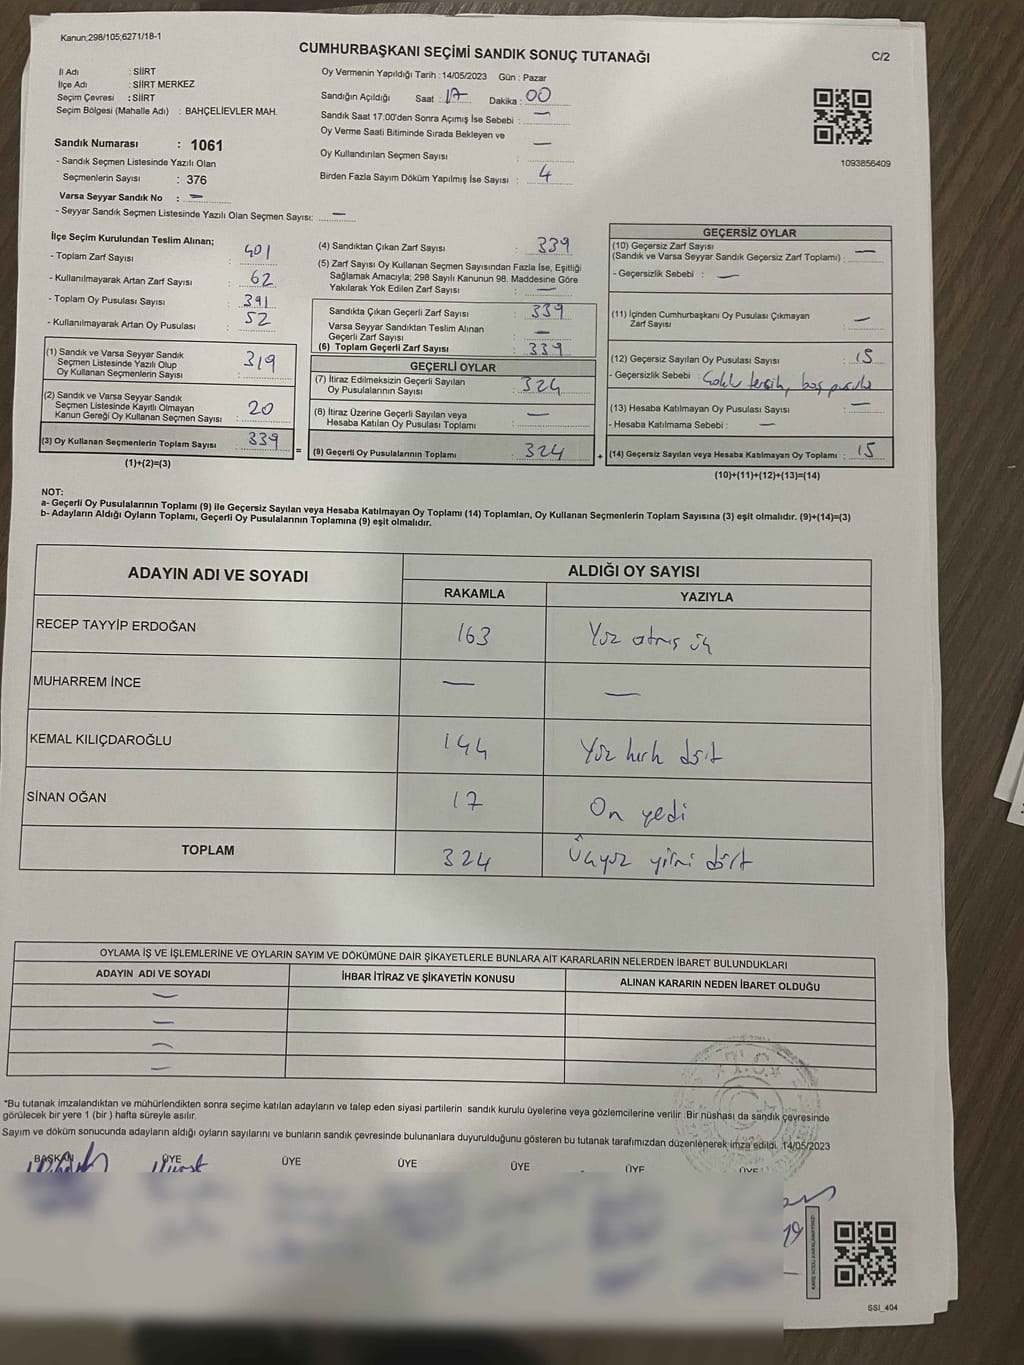 Kanun,298/105,6271/18-1
CUMHURBAŞKANI SEÇİMİ SANDIK SONUÇ TUTANAĞI
C/2
İl Adı : SİİRT
İlçe Adı : SİİRT MERKEZ
Seçim Çevresi : SİİRT
Seçim Bölgesi (Mahalle Adı) : BAHÇELİEVLER MAH.
Sandık Numarası : 1061
- Sandık Seçmen Listesinde Yazılı Olan
Seçmenlerin Sayısı : 376
Varsa Seyyar Sandık No : —
- Seyyar Sandık Seçmen Listesinde Yazılı Olan Seçmen Sayısı: —
Oy Vermenin Yapıldığı Tarih : 14/05/2023 Gün : Pazar
Sandığın Açıldığı Saat : 17 Dakika : 00
Sandık Saat 17.00'den Sonra Açımış İse Sebebi : —
Oy Verme Saati Bitiminde Sırada Bekleyen ve
Oy Kullandırılan Seçmen Sayısı : —
Birden Fazla Sayım Döküm Yapılmış İse Sayısı : 4
1093856409
İlçe Seçim Kurulundan Teslim Alınan;
- Toplam Zarf Sayısı : 401
- Kullanılmayarak Artan Zarf Sayısı : 62
- Toplam Oy Pusulası Sayısı : 391
- Kullanılmayarak Artan Oy Pusulası : 52
(1) Sandık ve Varsa Seyyar Sandık
Seçmen Listesinde Yazılı Olup
Oy Kullanan Seçmenlerin Sayısı : 319
(2) Sandık ve Varsa Seyyar Sandık
Seçmen Listesinde Kayıtlı Olmayan
Kanun Gereği Oy Kullanan Seçmen Sayısı : 20
(3) Oy Kullanan Seçmenlerin Toplam Sayısı : 339
(1)+(2)=(3)
(4) Sandıktan Çıkan Zarf Sayısı : 339
(5) Zarf Sayısı Oy Kullanan Seçmen Sayısından Fazla İse, Eşitliği
Sağlamak Amacıyla; 298 Sayılı Kanunun 98. Maddesine Göre
Yakılarak Yok Edilen Zarf Sayısı : —
Sandıkta Çıkan Geçerli Zarf Sayısı : 339
Varsa Seyyar Sandıktan Teslim Alınan
Geçerli Zarf Sayısı : —
(6) Toplam Geçerli Zarf Sayısı : 339
GEÇERLİ OYLAR
(7) İtiraz Edilmeksizin Geçerli Sayılan
Oy Pusulalarının Sayısı : 324
(8) İtiraz Üzerine Geçerli Sayılan veya
Hesaba Katılan Oy Pusulası Toplamı : —
= (9) Geçerli Oy Pusulalarının Toplamı : 324
GEÇERSİZ OYLAR
(10) Geçersiz Zarf Sayısı
(Sandık ve Varsa Seyyar Sandık Geçersiz Zarf Toplamı) : —
- Geçersizlik Sebebi : —
(11) İçinden Cumhurbaşkanı Oy Pusulası Çıkmayan
Zarf Sayısı : —
(12) Geçersiz Sayılan Oy Pusulası Sayısı : 15
- Geçersizlik Sebebi : Çoklu tercih, boş pusula
(13) Hesaba Katılmayan Oy Pusulası Sayısı : —
- Hesaba Katılmama Sebebi : —
+ (14) Geçersiz Sayılan veya Hesaba Katılmayan Oy Toplamı : 15
(10)+(11)+(12)+(13)=(14)
NOT:
a- Geçerli Oy Pusulalarının Toplamı (9) ile Geçersiz Sayılan veya Hesaba Katılmayan Oy Toplamı (14) Toplamları, Oy Kullanan Seçmenlerin Toplam Sayısına (3) eşit olmalıdır. (9)+(14)=(3)
b- Adayların Aldığı Oyların Toplamı, Geçerli Oy Pusulalarının Toplamına (9) eşit olmalıdır.
ADAYIN ADI VE SOYADI
ALDIĞI OY SAYISI
RAKAMLA YAZIYLA
RECEP TAYYİP ERDOĞAN 163 Yüz atmış üç
MUHARREM İNCE — —
KEMAL KILIÇDAROĞLU 144 Yüz kırk dört
SİNAN OĞAN 17 On yedi
TOPLAM 324 Üçyüz yirmi dört
OYLAMA İŞ VE İŞLEMLERİNE VE OYLARIN SAYIM VE DÖKÜMÜNE DAİR ŞİKAYETLERLE BUNLARA AİT KARARLARIN NELERDEN İBARET BULUNDUKLARI
ADAYIN ADI VE SOYADI İHBAR İTİRAZ VE ŞİKAYETİN KONUSU ALINAN KARARIN NEDEN İBARET OLDUĞU
—
—
—
—
*Bu tutanak imzalandıktan ve mühürlendikten sonra seçime katılan adayların ve talep eden siyasi partilerin sandık kurulu üyelerine veya gözlemcilerine verilir. Bir nüshası da sandık çevresinde
görülecek bir yere 1 (bir) hafta süreyle asılır.
Sayım ve döküm sonucunda adayların aldığı oyların sayılarını ve bunların sandık çevresinde bulunanlara duyurulduğunu gösteren bu tutanak tarafımızdan düzenlenerek imza edildi. 14/05/2023
BAŞKAN ÜYE ÜYE ÜYE ÜYE ÜYE ÜYE
T.C.
19
SSI_404